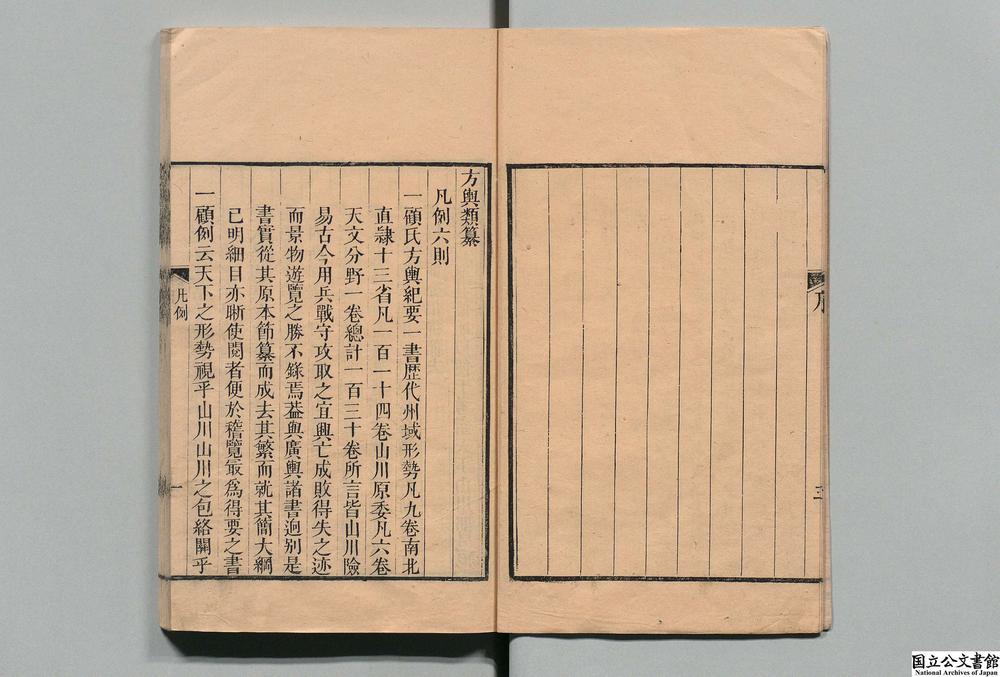 序
三
方輿類纂
凡例六則
一顧氏方輿紀要一書歷代州域形勢凡九卷南北
直隷十三省凡一百一十四卷山川原委凡六卷
天文分野一卷總計一百三十卷所言皆山川險
易古今用兵戰守攻取之宜興亡成敗得失之迹
而景物遊覽之勝不錄焉葢與廣輿諸書迥别是
書實從其原本節纂而成去其繁而就其簡大綱
已明細目亦晰使閱者便於稽覽㝡爲得要之書
一顧例云天下之形勢視乎山川山川之包絡關乎
凡例
一
国立公文書館
National Archives of Japan